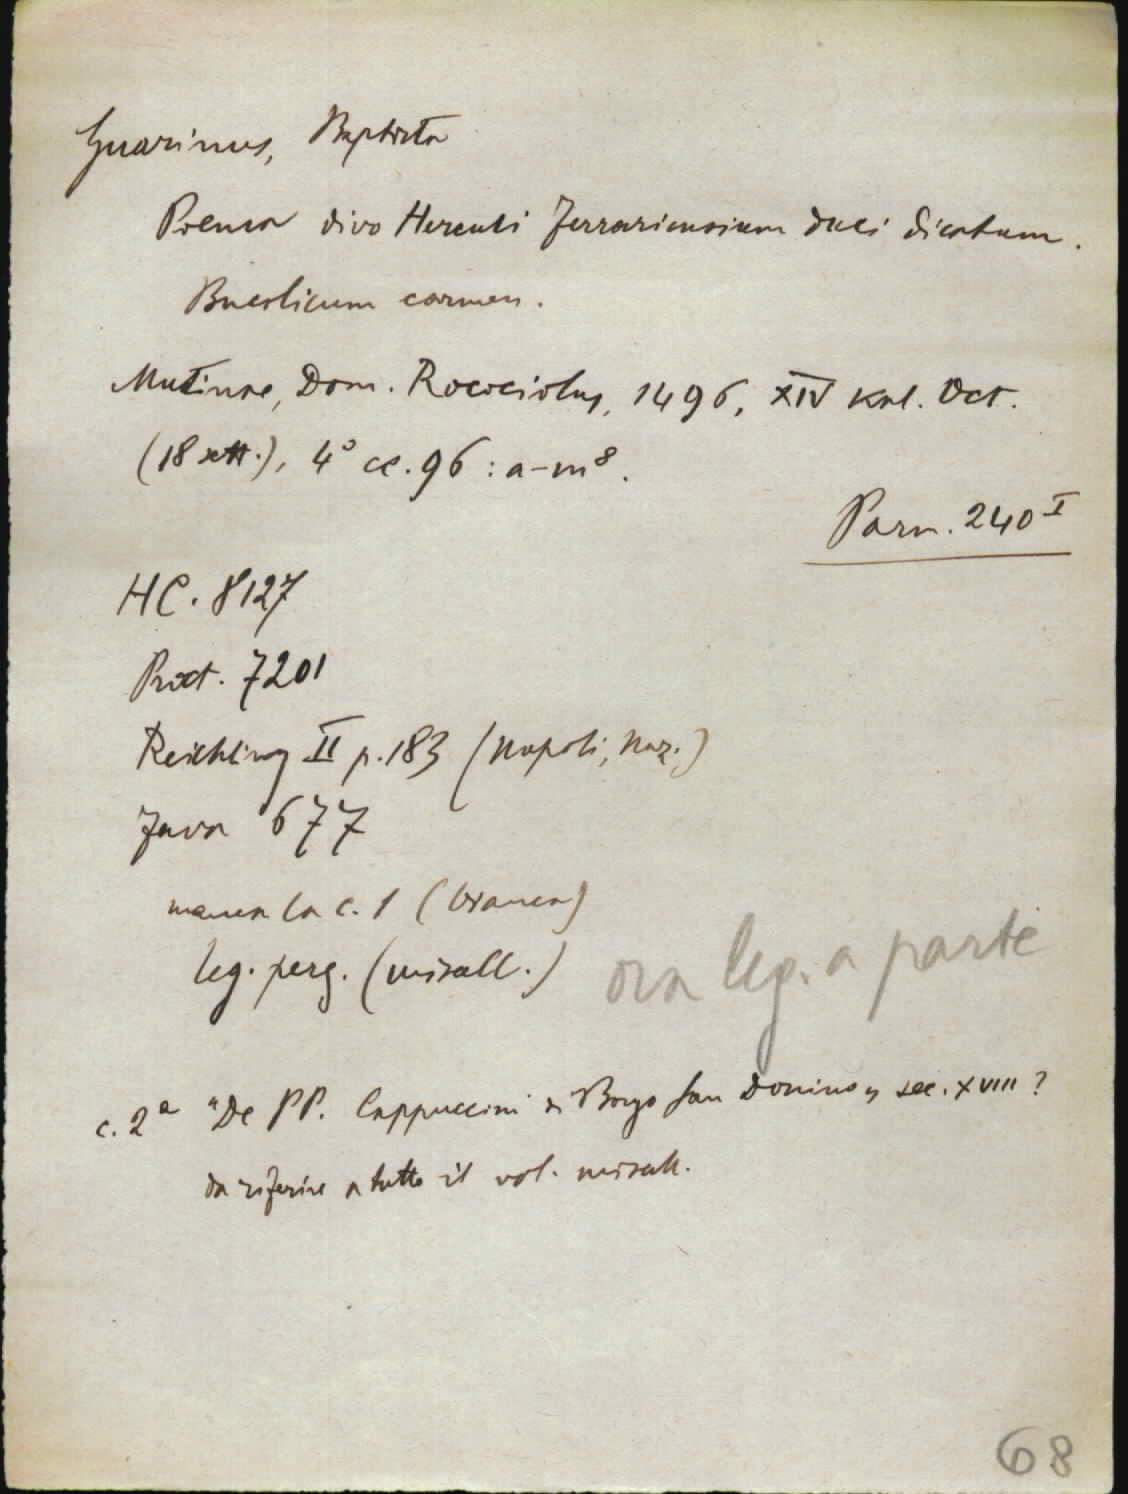 Guarinus, Baptista
Poema divo Herculi Ferrariensium duci dicatum.
Bucolicum carmen.
Mutinae, Dom. Rocociolus, 1496, XIV kal. Oct.
(18 sett.), 4° cc. 96 : a-m⁸.
Parm. 240 I
HC. 8127
Proct. 7201
Reichling II p. 183 (Napoli, Naz.)
Fava 677
manca la c. 1 (bianca)
leg. perg. (miscell.)
ora leg. a parte
c. 2ª "De PP. Cappuccini di Borgo San Donino" sec. XVIII ?
da riferire a tutto il vol. miscell.
68